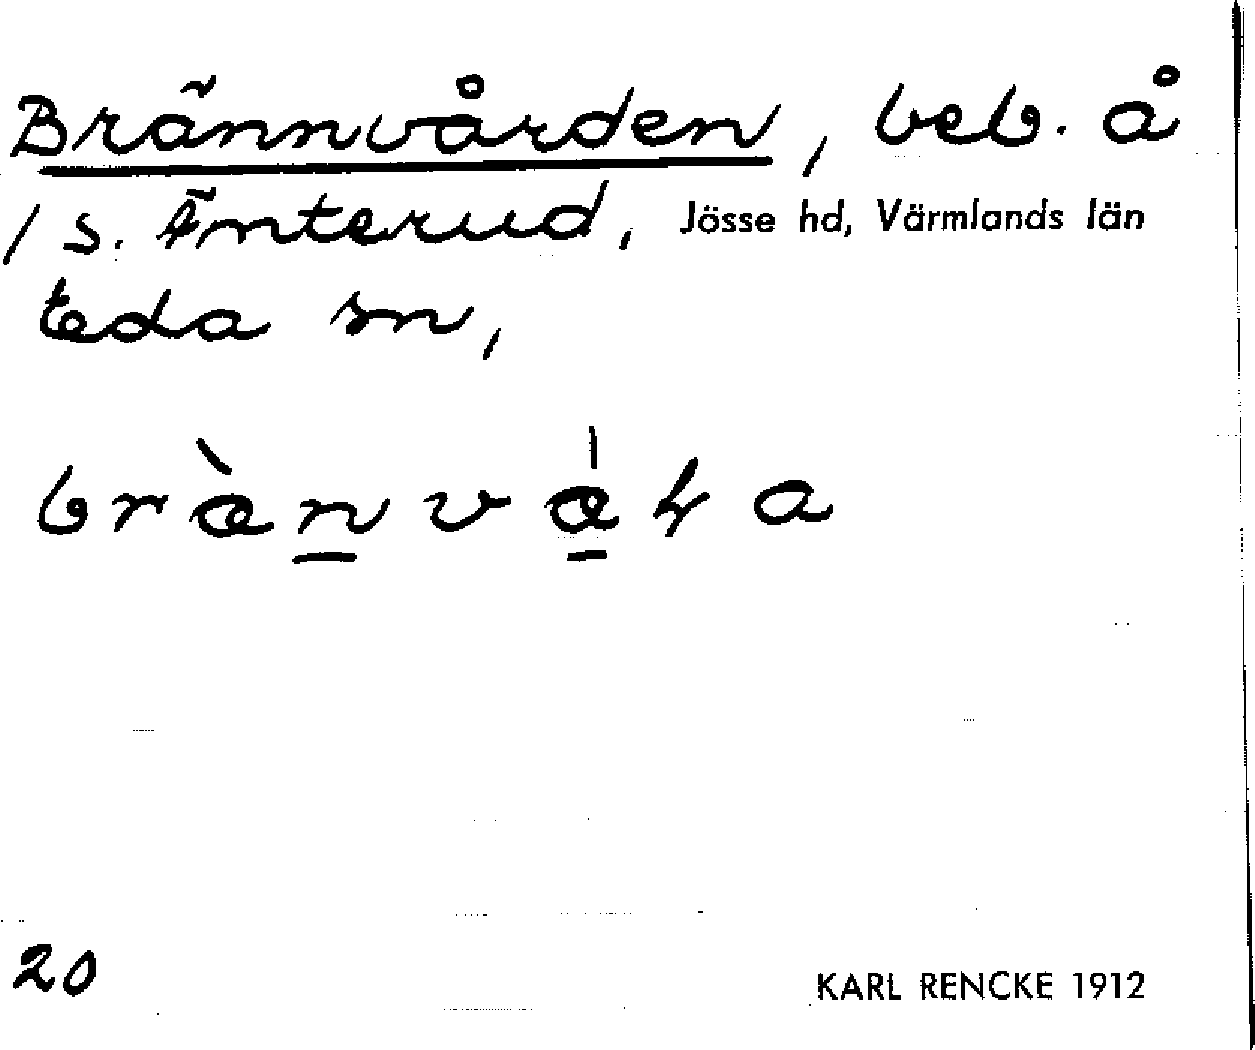 Brännvården, beb. å
/ s. Änterud, Jösse hd, Värmlands län
teda sn,
20
KARL RENCKE 1912